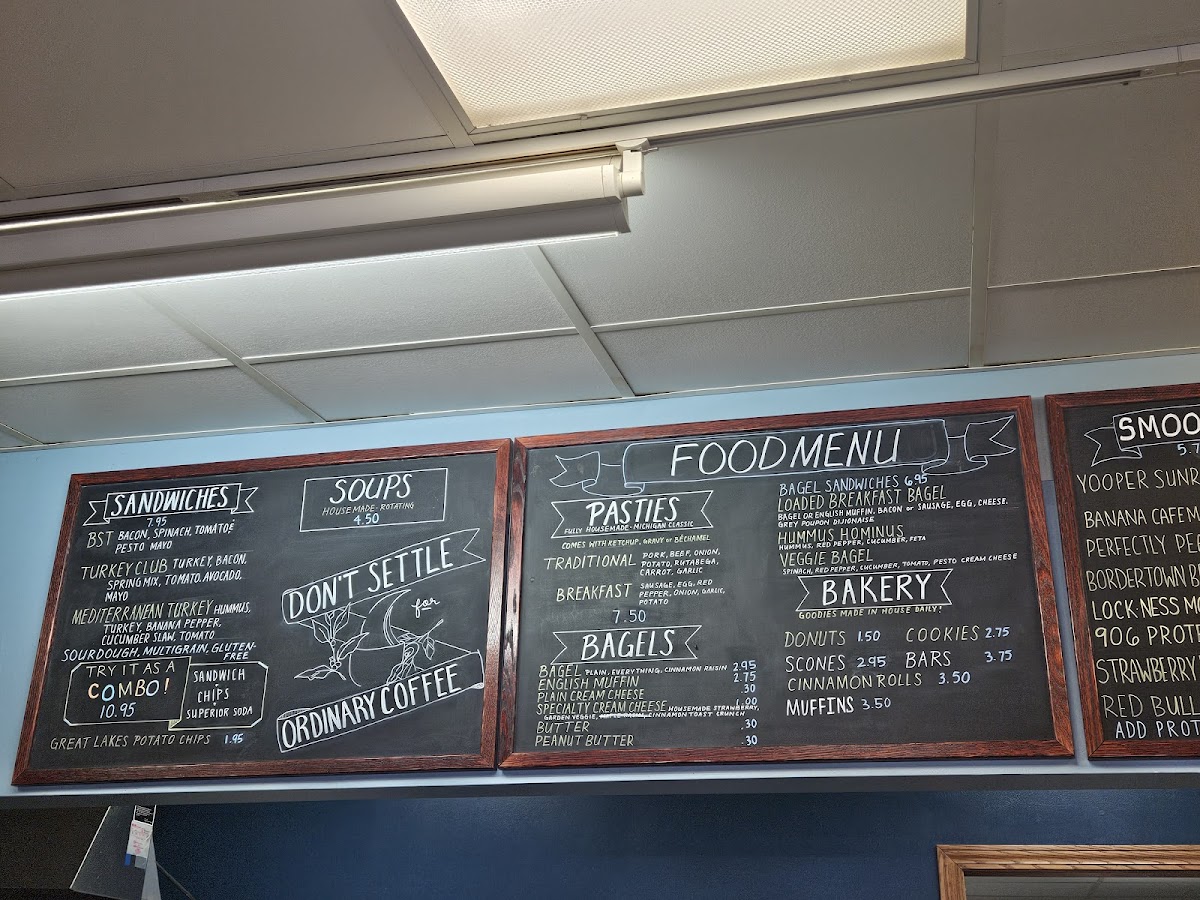 SANDWICHES
7.95
BST BACON, SPINACH, TOMATOE
PESTO MAYO
TURKEY CLUB TURKEY, BACON,
SPRING MIX, TOMATO, AVOCADO,
MAYO
MEDITERRANEAN TURKEY HUMMUS,
TURKEY, BANANA PEPPER,
CUCUMBER SLAW, TOMATO
SOURDOUGH, MULTIGRAIN, GLUTEN-
FREE
TRY IT AS A
COMBO!
10.95
SANDWICH
CHIPS
SUPERIOR SODA
GREAT LAKES POTATO CHIPS 1.95
SOUPS
HOUSEMADE - ROTATING
4.50
DON'T SETTLE
for
ORDINARY COFFEE
FOOD MENU
PASTIES
FULLY HOUSEMADE - MICHIGAN CLASSIC
COMES WITH KETCHUP, GRAVY, or BÉCHAMEL
TRADITIONAL PORK, BEEF, ONION,
POTATO, RUTABEGA,
CARROT, GARLIC
BREAKFAST SAUSAGE, EGG, RED
PEPPER, ONION, GARLIC,
POTATO
7.50
BAGELS
BAGEL PLAIN, EVERYTHING, CINNAMON RAISIN 2.95
ENGLISH MUFFIN 2.75
PLAIN CREAM CHEESE .30
SPECIALTY CREAM CHEESE HOUSEMADE STRAWBERRY, 1.00
GARDEN VEGGIE, CINNAMON TOAST CRUNCH
BUTTER .30
PEANUT BUTTER .30
BAGEL SANDWICHES 6.95
LOADED BREAKFAST BAGEL
BAGEL OR ENGLISH MUFFIN, BACON or SAUSAGE, EGG, CHEESE,
GREY POUPON DIJONAISE
HUMMUS HOMINUS
HUMMUS, RED PEPPER, CUCUMBER, FETA
VEGGIE BAGEL
SPINACH, RED PEPPER, CUCUMBER, TOMATO, PESTO CREAM CHEESE
BAKERY
GOODIES MADE IN HOUSE DAILY!
DONUTS 1.50 COOKIES 2.75
SCONES 2.95 BARS 3.75
CINNAMON ROLLS 3.50
MUFFINS 3.50
SMOO
5.7
YOOPER SUNR
BANANA CAFEM
PERFECTLY PE
BORDERTOWN B
LOCK NESS MO
906 PROTE
STRAWBERRY
RED BULL
ADD PROT